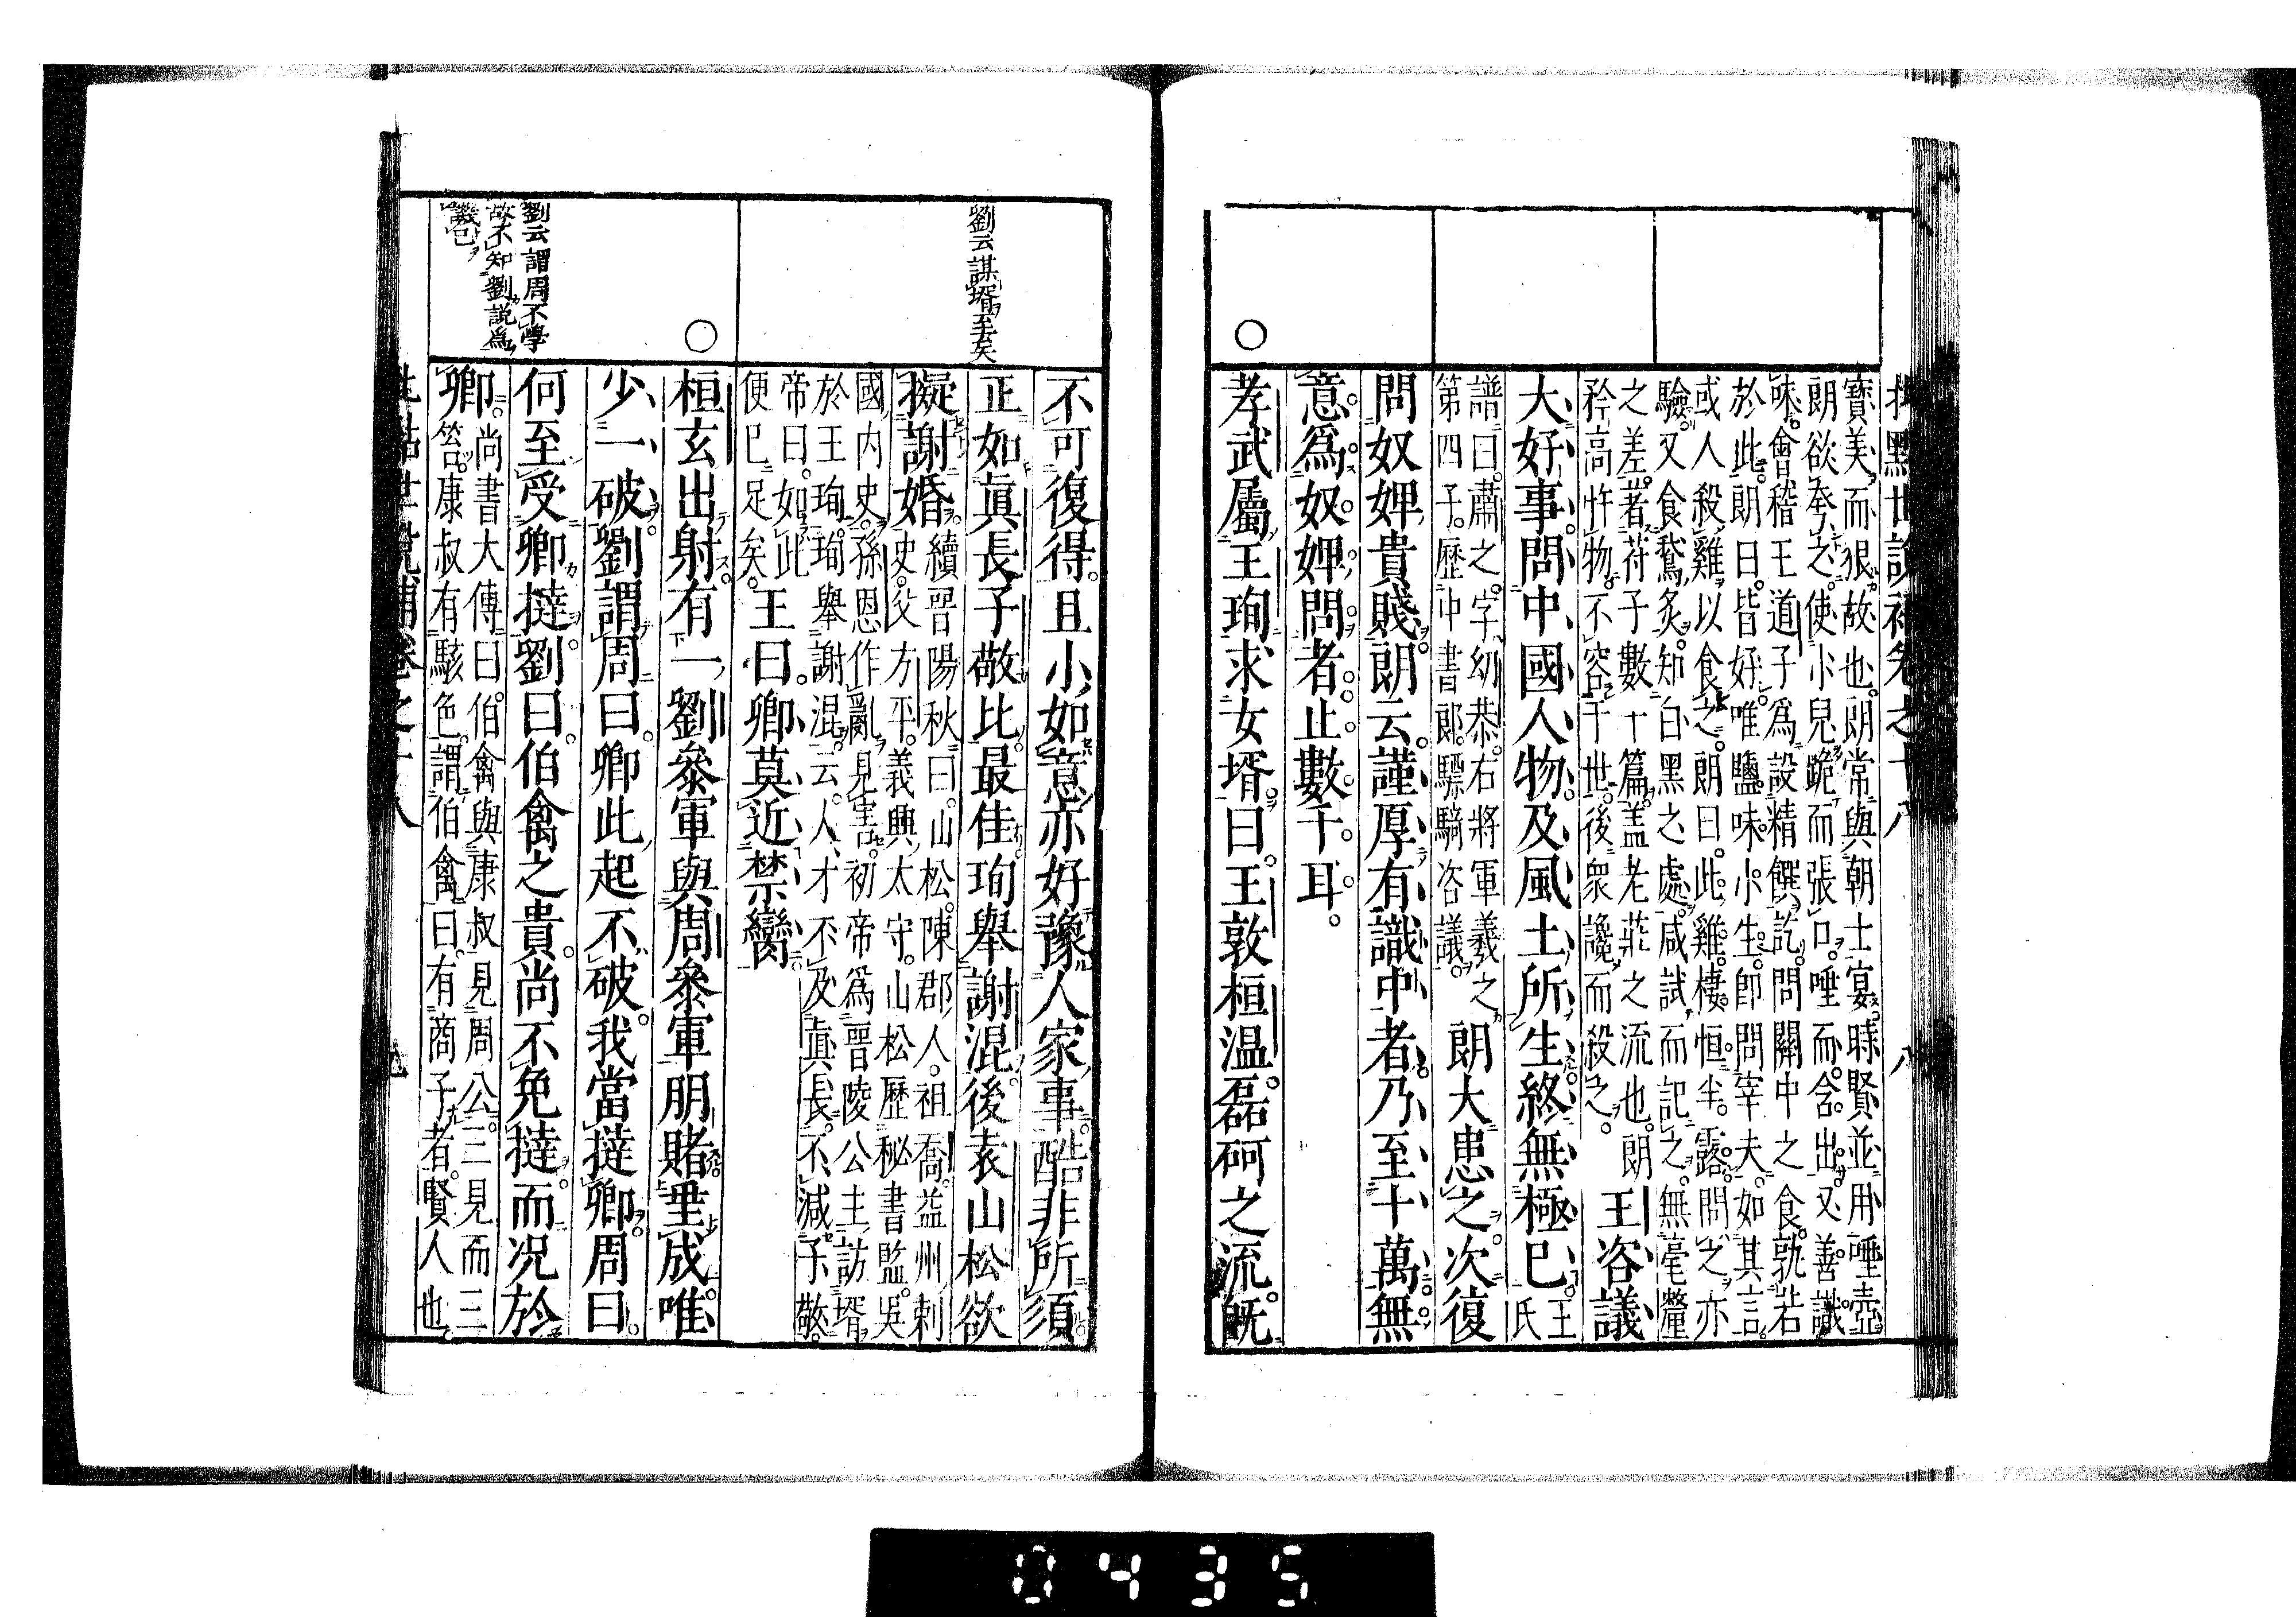 寶美而狠故也朗常與朝士宴時賢並用唾壺
朗欲夸之使小兒跪而張口唾而含出又善識
味會稽王道子為設精饌訖問關中之食孰若
於此朗曰皆好唯鹽味小生即問宰夫如其言
或人殺雞以食之朗曰此雞棲恒半露問之亦
驗又食鵞炙知白黑之處咸試而記之無毫釐
之差著苻子數十篇盖老莊之流也朗
矜高忤物不容于世後衆讒而殺之
王咨議
大好事問中國人物及風土所生終無極已
王氏
譜曰肅之字幼恭右將軍羲之
第四子歷中書郎驃騎咨議
朗大患之次復
問奴婢貴賤朗云謹厚有識中者乃至十萬無
意爲奴婢問者止數千耳
○
孝武屬王珣求女壻曰王敦桓温磊砢之流旣
不可復得且小如意亦好豫人家事酷非所須
正如真長子敬比最佳珣舉謝混後袁山松欲
擬謝婚
續晉陽秋曰山松陳郡人祖喬益州刺
史父方平義興太守山松歷秘書監吳
國内史孫恩作亂見害初帝爲晉陵公主訪壻
於王珣珣舉謝混云人才不及真長不減子敬
帝曰如此
便已足矣
王曰卿莫近禁臠
劉云謀壻至矣
○
桓玄出射有一劉參軍與周參軍朋賭垂成唯
少一破劉謂周曰卿此起不破我當撻卿周曰
何至受卿撻劉曰伯禽之貴尚不免撻而况於
卿
尚書大傳曰伯禽與康叔見周公三見而三
笞康叔有駭色謂伯禽曰有商子者賢人也
劉云謂周不學
故不知劉説爲
譏已
八